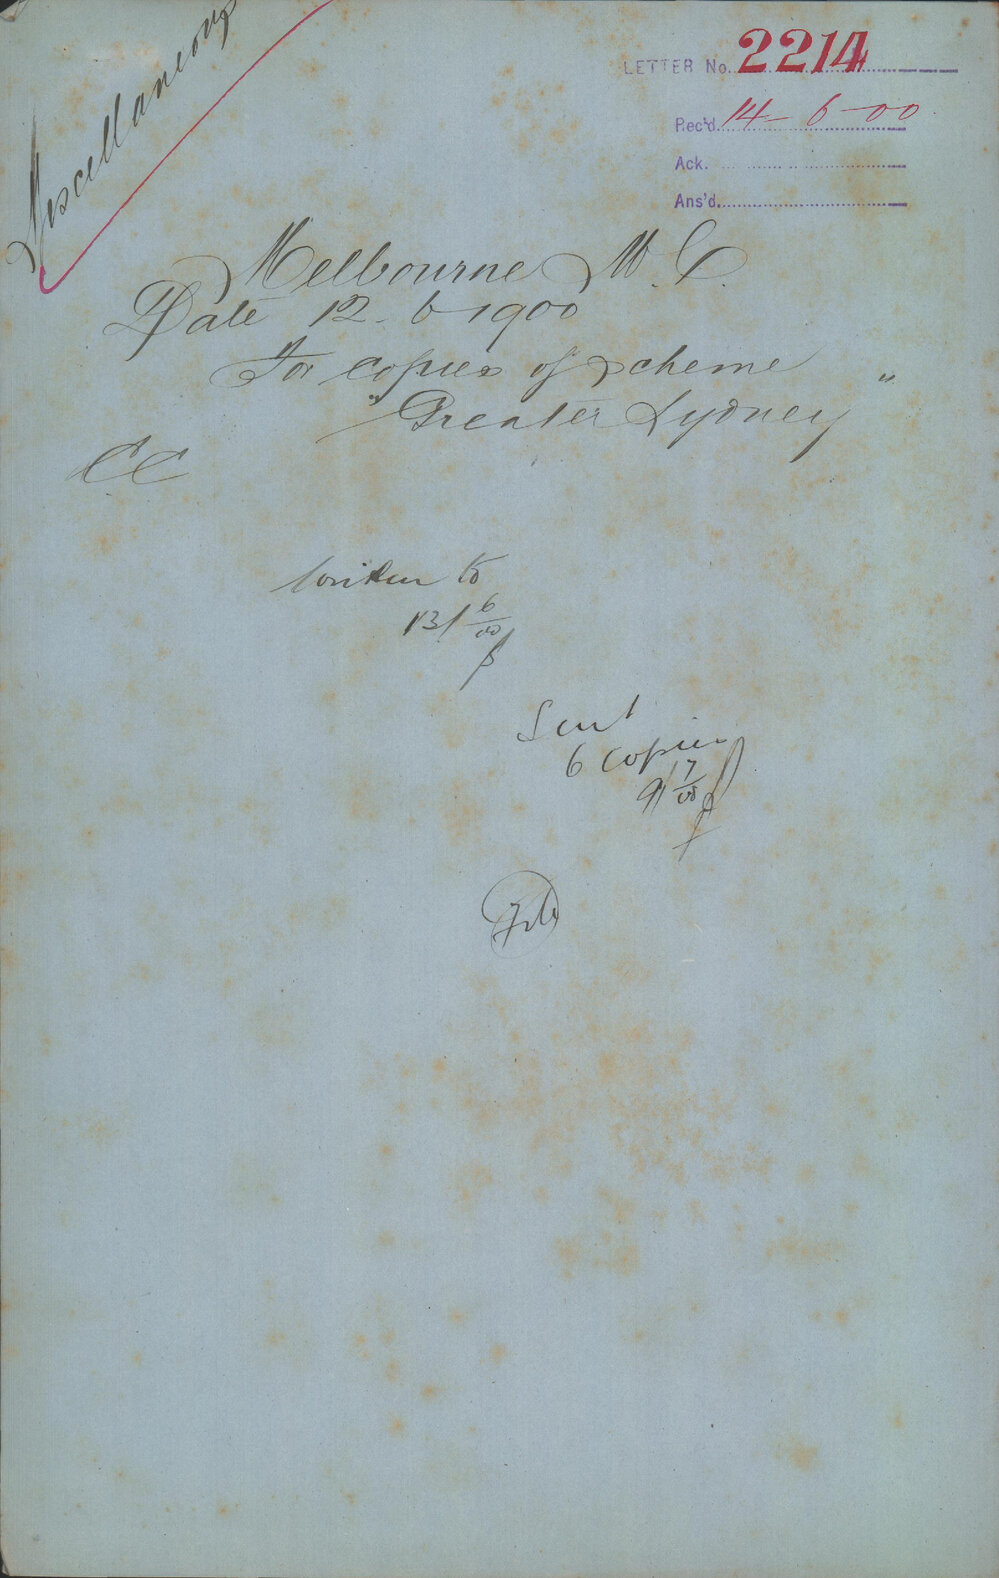 Miscellaneous
LETTER No. 2214
Rec'd. 14-6-00
Ack.
Ans'd.
Melbourne M.C.
Date 12-6-1900
For copies of scheme
"Greater Sydney"
CC
written to
13/6/00
Sent
6 copies
9/7/00
File